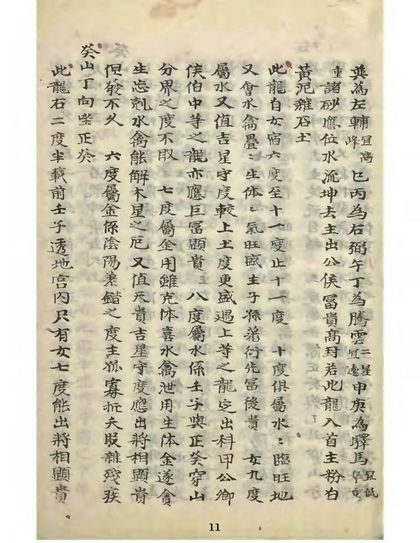 巽為左輔宜高峰巳丙為右弼午丁為騰雲二星宜遠申庚為驛馬宜低
重諸砂應位水流坤去主出公侯富貴高封若此龍入首主粉白
黃泥雜石土
此龍自女宿六度至十一度止十一度 十度俱屬水:臨旺地
又會水禽疊:生体:氣旺盛主子孫蕃衍先富後貴 女九度
屬水又值吉星守度較上土度更盛遇上等之龍定出科甲公卿
侯伯中等之龍亦應巨富顯貴 八度屬水係壬子與正癸穿山
分界之度不取 七度屬金用雖克体喜水禽泄用生体金逐貪
生忘剋水禽能解木星之厄又值天貴吉星守度應出將相顯貴
但發不久 六度屬金係陰陽差錯之度主孤寡折夭殷雜殘疾
癸山丁向坐正癸
此龍石二度半載前壬子透地宮內只有女七度能出將相顯貴
11